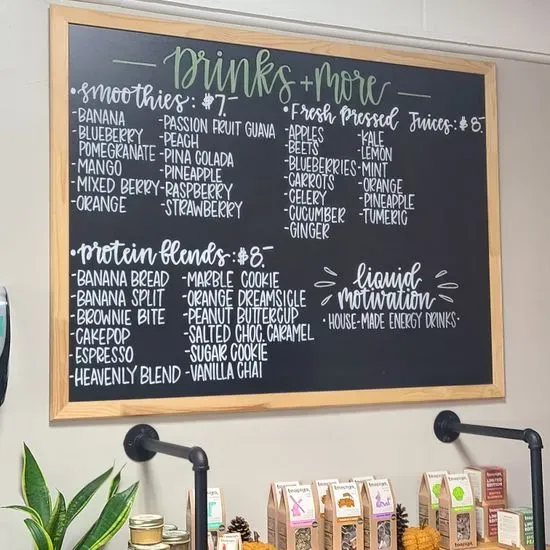 Drinks + More
• Smoothies: $7.-
- BANANA
- BLUEBERRY POMEGRANATE
- MANGO
- MIXED BERRY
- ORANGE
- PASSION FRUIT GUAVA
- PEACH
- PINA COLADA
- PINEAPPLE
- RASPBERRY
- STRAWBERRY
• Fresh Pressed Juices: $8.-
- APPLES
- BEETS
- BLUEBERRIES
- CARROTS
- CELERY
- CUCUMBER
- GINGER
- KALE
- LEMON
- MINT
- ORANGE
- PINEAPPLE
- TUMERIC
• Protein Blends: $8.-
- BANANA BREAD
- BANANA SPLIT
- BROWNIE BITE
- CAKEPOP
- ESPRESSO
- HEAVENLY BLEND
- MARBLE COOKIE
- ORANGE DREAMSICLE
- PEANUT BUTTERCUP
- SALTED CHOC. CARAMEL
- SUGAR COOKIE
- VANILLA CHAI
liquid
motivation
• HOUSE-MADE ENERGY DRINKS •
LIMITED
EDITION